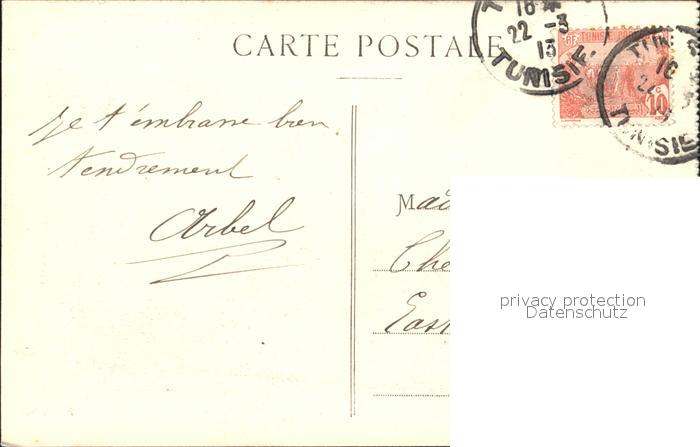 CARTE POSTALE
16
22 -3
13
TUNISIE.
RF TUNISIE
10
c
TUN
16
22
TUNISIE
je t'embrasse bien
tendrement
Arbel
Mad
Che
privacy protection
Datenschutz